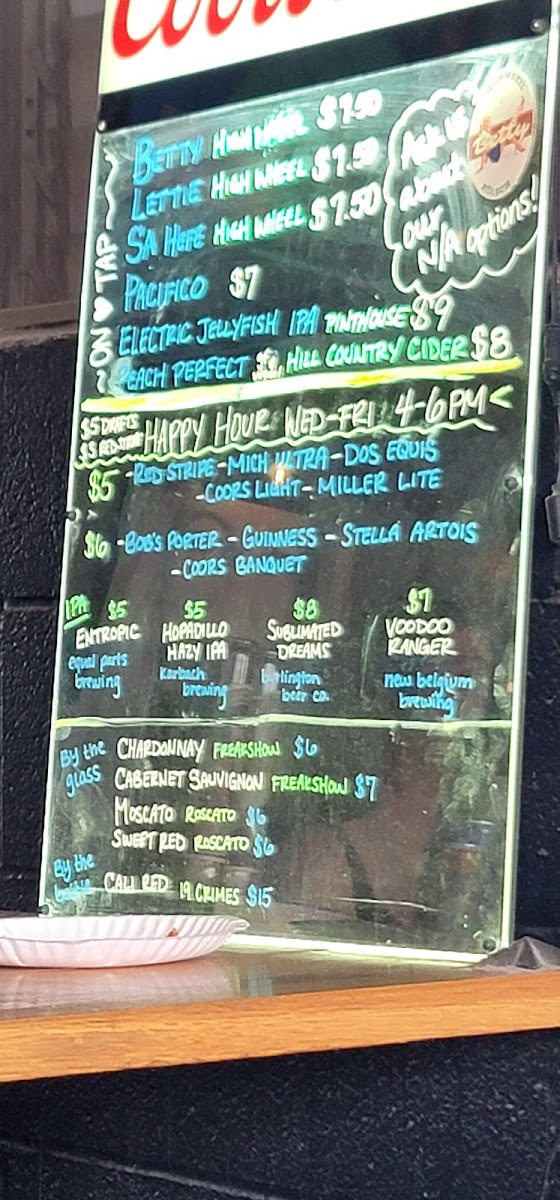 Coors
BETTY HIGH WHEEL $7.50
LETTIE HIGH WHEEL $7.50
SA HEFE HIGH WHEEL $7.50
PACIFICO $7
ELECTRIC JELLYFISH IPA PINTHOUSE $9
PEACH PERFECT HILL COUNTRY CIDER $8
~ ON ♥ TAP ~
Ask us
about
our
N/A options!
Betty
$5 DRAFTS
$3 RED STRIPE
HAPPY HOUR WED-FRI 4-6PM
$5 -RED STRIPE - MICH ULTRA - DOS EQUIS
-COORS LIGHT - MILLER LITE
$6 -BOB'S PORTER - GUINNESS - STELLA ARTOIS
-COORS BANQUET
IPA $5 $5 $8 $7
ENTROPIC HOPADILLO HAZY IPA SUBLIMATED DREAMS VOODOO RANGER
equal parts brewing Karbach brewing burlington beer co. new belgium brewing
By the glass
CHARDONNAY FREAKSHOW $6
CABERNET SAUVIGNON FREAKSHOW $7
MOSCATO ROSCATO $6
SWEET RED ROSCATO $6
By the
CALI RED 19 CRIMES $15